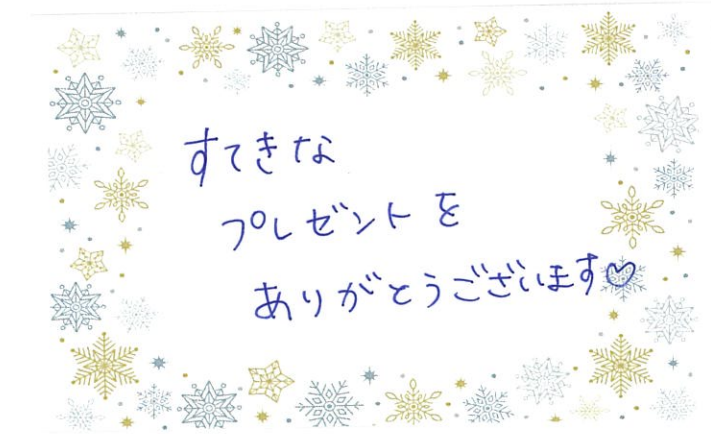 すてきな
プレゼントを
ありがとうございます♡